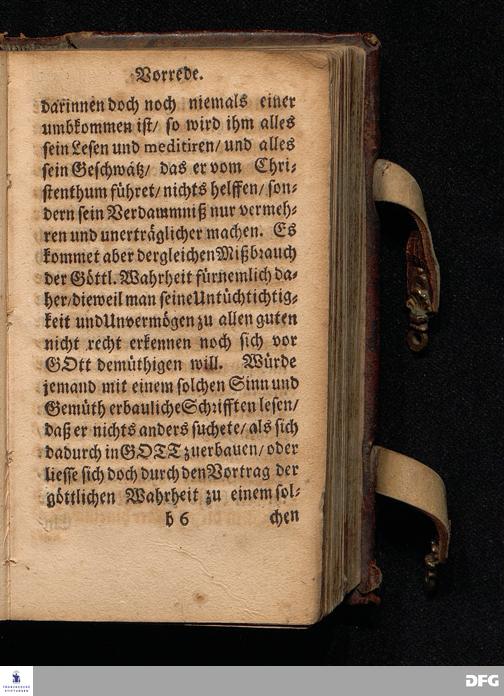 Vorrede.
darinnen doch noch niemals einer
umbkommen ist/ so wird ihm alles
sein Lesen und meditiren/ und alles
sein Geschwätz/ das er vom Chri⸗
stenthum führet/ nichts helffen/ son⸗
dern sein Verdammniß nur vermeh⸗
ren und unerträglicher machen. Es
kommet aber dergleichen Mißbrauch
der Göttl. Wahrheit fürnemlich da⸗
her/ dieweil man seine Untüchtichtig⸗
keit und Unvermögen zu allen guten
nicht recht erkennen noch sich vor
GOtt demüthigen will. Würde
jemand mit einem solchen Sinn und
Gemüth erbauliche Schrifften lesen/
daß er nichts anders suchete/ als sich
dadurch in GOTT zu erbauen/ oder
liesse sich doch durch den Vortrag der
göttlichen Wahrheit zu einem sol⸗
b 6 chen
FRANCKESCHE
STIFTUNGEN
DFG